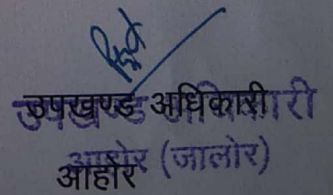 उपखण्ड अधिकारी
उपखण्ड अधिकारी
आहोर (जालोर)
आहोर